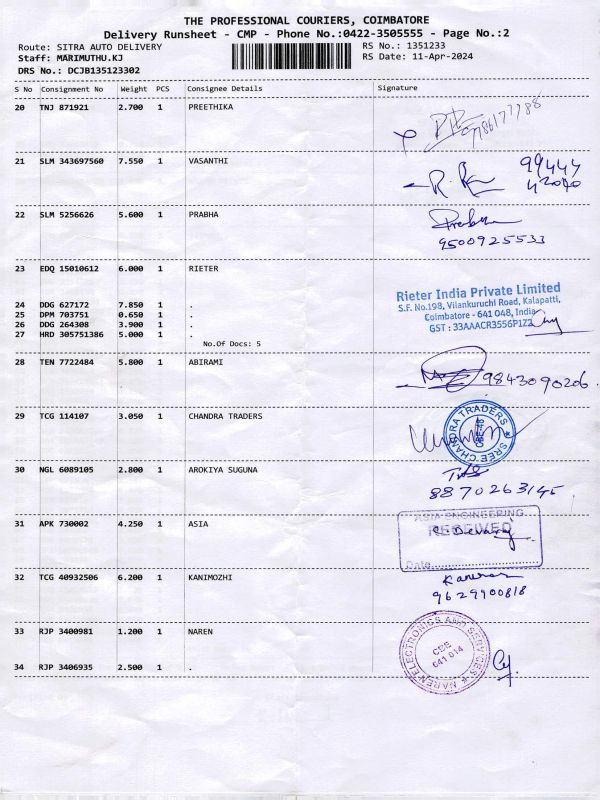 THE PROFESSIONAL COURIERS, COIMBATORE
Delivery Runsheet - CMP - Phone No.:0422-3505555 - Page No.:2
Route: SITRA AUTO DELIVERY RS No.: 1351233
Staff: MARIMUTHU.KJ RS Date: 11-Apr-2024
DRS No.: DCJB135123302
S No Consignment No Weight PCS Consignee Details Signature
20 TNJ 871921 2.700 1 PREETHIKA
21 SLM 343697560 7.550 1 VASANTHI
99444
42040
22 SLM 5256626 5.600 1 PRABHA
Prabha
9500925533
23 EDQ 15010612 6.000 1 RIETER
Rieter India Private Limited
S.F. No.198, Vilankuruchi Road, Kalapatti,
Coimbatore - 641 048, India
GST : 33AAACR3556P1Z2
24 DDG 627172 7.850 1 .
25 DPM 703751 0.650 1 .
26 DDG 264308 3.900 1 .
27 HRD 305751386 5.000 1 .
No.Of Docs: 5
28 TEN 7722484 5.800 1 ABIRAMI
9843090206
29 TCG 114107 3.050 1 CHANDRA TRADERS
SREE CHANDRA TRADERS
CBE-48
30 NGL 6089105 2.800 1 AROKIYA SUGUNA
8870263145
31 APK 730002 4.250 1 ASIA
ASIA ENGINEERING
RECEIVED
Date
32 TCG 40932506 6.200 1 KANIMOZHI
9629900818
33 RJP 3400981 1.200 1 NAREN
NAREN ELECTRONICS AND SERVICES
CBE
641 014
34 RJP 3406935 2.500 1 .